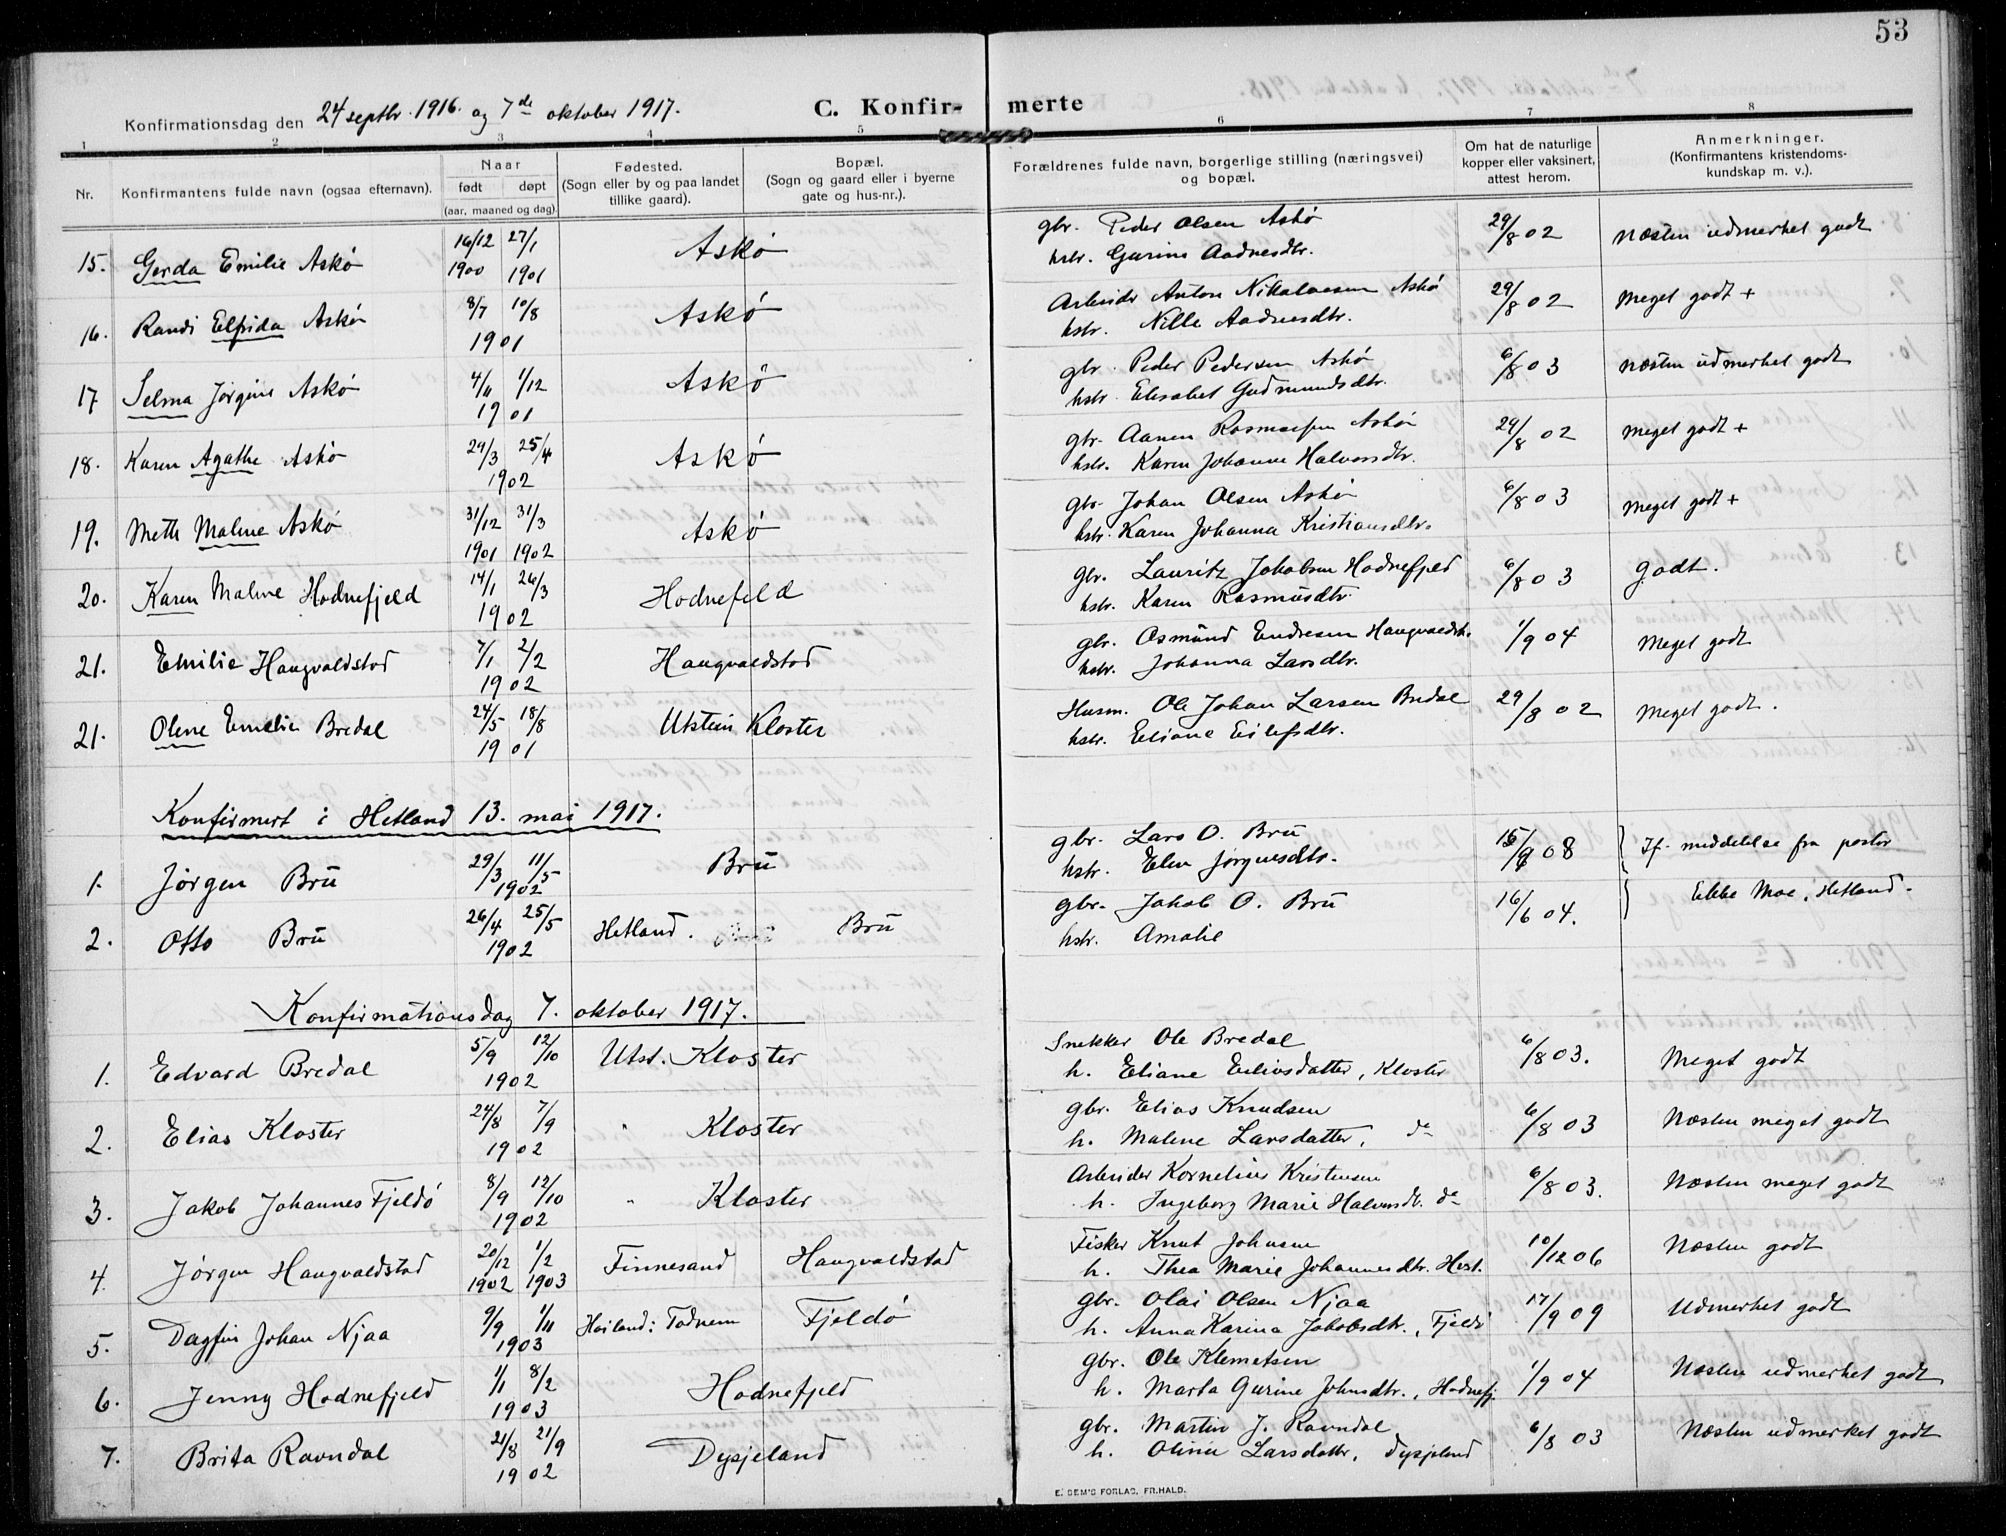 53
Konfirmationsdag den 24 septbr. 1916. og 7de oktober 1917.
C. Konfir- merte
1 2 3 4 5 6 7 8
Nr.
Konfirmantens fulde navn (ogsaa efternavn).
Naar
født døpt
(aar, maaned og dag).
Fødested.
(Sogn eller by og paa landet
tillike gaard).
Bopæl.
(Sogn og gaard eller i byerne
gate og hus-nr.).
Forældrenes fulde navn, borgerlige stilling (næringsvei)
og bopæl.
Om hat de naturlige
kopper eller vaksinert,
attest herom.
Anmerkninger.
(Konfirmantens kristendoms-
kundskap m. v.).
15. Gerda Emilie Askø 16/12 1900 27/1 1901 Askø gbr. Peder Olsen Askø 29/8 02 Næsten udmerket godt
hstr. Gurine Aadnesdtr.
16. Randi Elfrida Askø 8/7 10/8 1901 Askø Arbeider Anton Nikolaesen Askø 29/8 02 Meget godt +
hstr. Nille Aadnesdtr.
17 Selma Jørgine Askø 4/11 1/12 1901 Askø gbr. Peder Pedersen Askø 6/8 03 Næsten udmerket godt
hstr. Elisabet Gudmundsdtr.
18. Karen Agathe Askø 29/3 25/4 1902 Askø gbr. Aanen Rasmussen Askø 29/8 02 Meget godt +
hstr. Karen Johanne Halvorsdtr.
19. Meth Malene Askø 31/12 1901 31/3 1902 Askø gbr. Johan Olsen Askø 6/8 03 Meget godt +
hstr. Karen Johanna Kristiansdtr.
20. Karen Malene Hodnefjeld 14/1 26/3 1902 Hodnefeld gbr. Lauritz Jakobsen Hodnefjeld 6/8 03 Godt.
hstr. Karen Rasmusdtr.
21. Emilie Haugvaldstad 7/1 2/2 1902 Haugvaldstad gbr. Osmund Endresen Haugvaldst. 1/9 04 Meget godt
hstr. Johanna Larsdtr.
21. Olene Emelie Bredal 24/5 18/8 1901 Utstein Kloster Husm. Ole Johan Larsen Bredal 29/8 02 Meget godt.
hstr. Eliane Eilefsdtr.
Konfirmert i Hetland 13. mai 1917.
1. Jørgen Bru 29/3 11/5 1902 Bru gbr. Lars O. Bru 15/9 08 If. meddelelse fra pastor
hstr. Elen Jørgnesdtr.
2. Otto Bru 26/4 25/5 1902 Hetland. Bru gbr. Jakob O. Bru 16/6 04. Ebbe Moe, Hetland.
hstr. Amalie
Konfirmationsdag 7. oktober 1917.
1. Edvard Bredal 5/9 12/10 1902 Utst. Kloster Snekker Ole Bredal 6/8 03. Meget godt
h. Eliane Eilivsdatter, Kloster
2. Elias Kloster 24/8 7/9 1902 " Kloster gbr. Elias Knudsen 6/8 03 Næsten meget godt
h. Malene Larsdatter, do
3. Jakob Johannes Fjeldø 8/9 12/10 1902 " Kloster Arbeider Kornelius Kristensen 6/8 03. Næsten meget godt
h. Ingeborg Marie Halvorsdt. do
4. Jørgen Haugvaldstad 20/12 1902 1/2 1903 Finnesand Haugvaldstad Fisker Knut Johnsen 10/12 06 Næsten godt
h. Thea Marie Johannesdtr.
5. Dagfin Johan Njaa 9/9 1/11 1903 Høiland: Todnem Fjeldø gbr. Olai Olsen Njaa 17/9 09 Udmerket godt
h. Anna Karina Jakobsdtr., Fjeldø
6. Jenny Hodnefjeld 1/1 8/2 1903 Hodnefjeld gbr. Ole Klemetsen 1/9 04 Næsten udmerket godt
h. Marta Gurine Johnsdtr., Hodnefj.
7. Brita Ravndal 21/8 21/9 1902 Dysjeland gbr. Martin J. Ravndal 6/8 03 Næsten udmerket godt
h. Oline Larsdattr, Dysjeland
E. SEM'S FORLAG, FR.HALD.